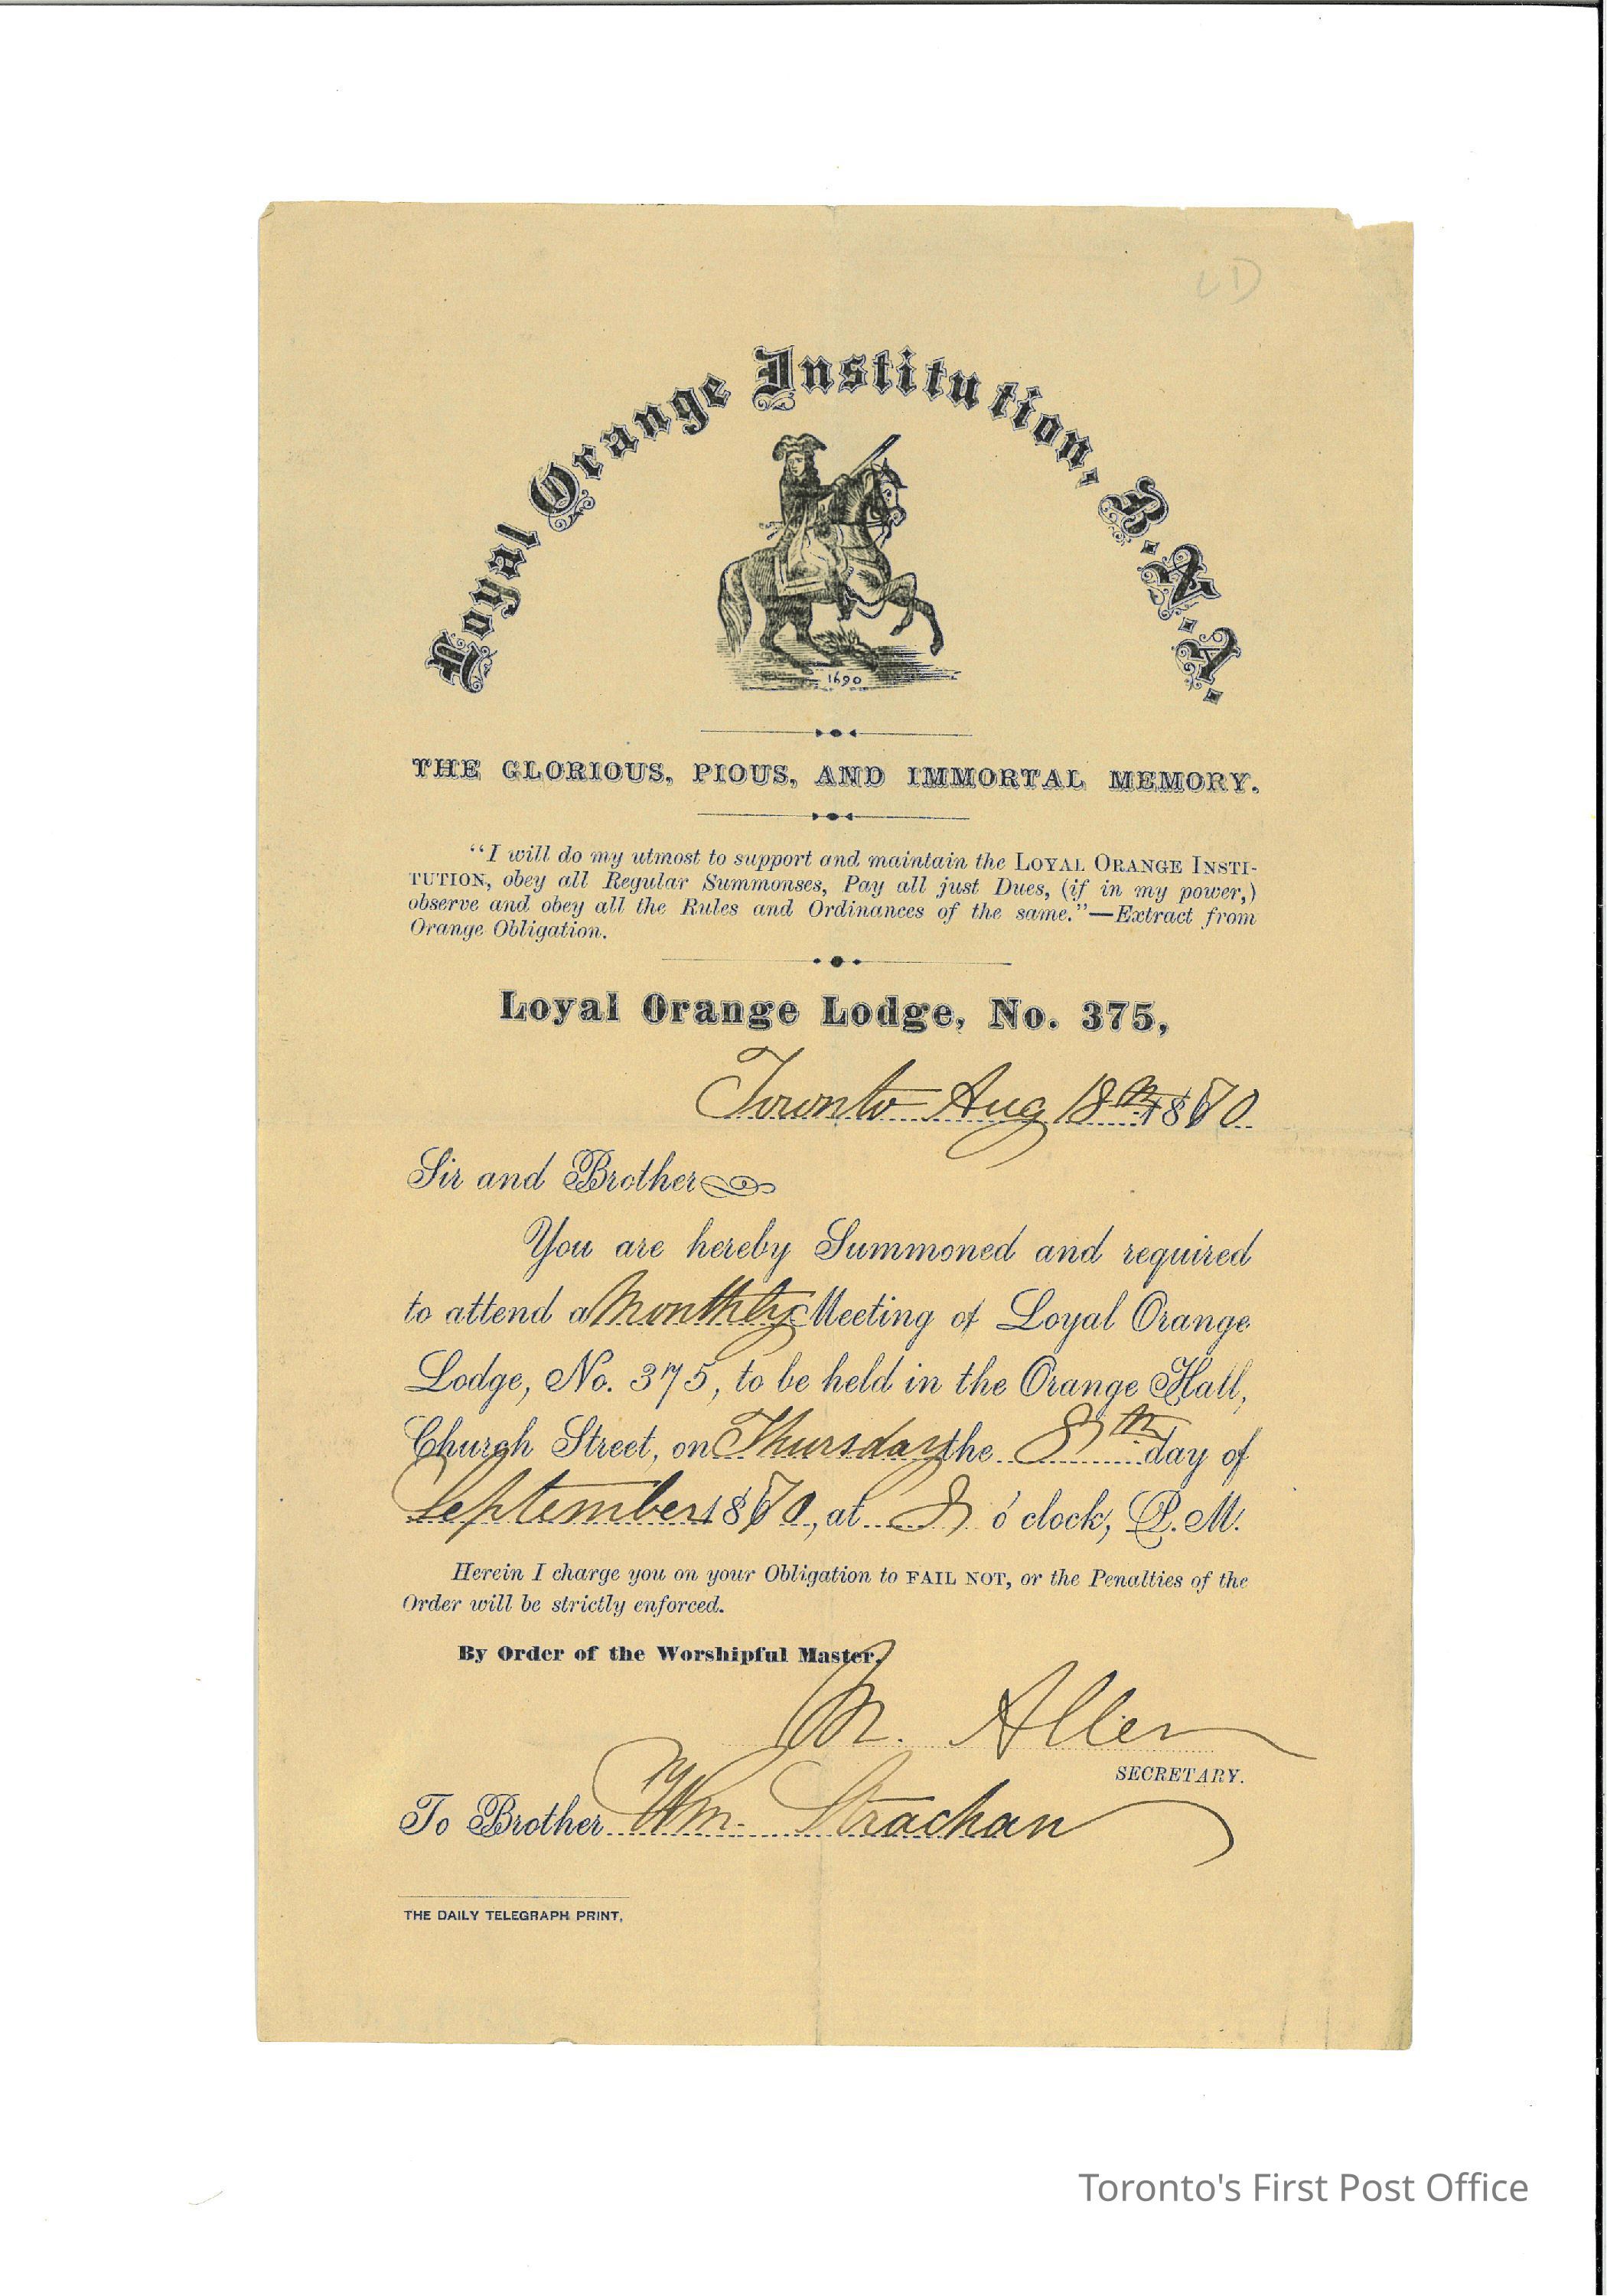 LD
Loyal Orange Institution, B. N. A.
1690
THE GLORIOUS, PIOUS, AND IMMORTAL MEMORY.
"I will do my utmost to support and maintain the LOYAL ORANGE INSTI-
TUTION, obey all Regular Summonses, Pay all just Dues, (if in my power,)
observe and obey all the Rules and Ordinances of the same."—Extract from
Orange Obligation.
Loyal Orange Lodge, No. 375,
Toronto Aug 18th 1870
Sir and Brother
You are hereby Summoned and required
to attend a Monthly Meeting of Loyal Orange
Lodge, No. 375, to be held in the Orange Hall,
Church Street, on Thursday the 8th day of
September 1870, at 8 o'clock, P.M.
Herein I charge you on your Obligation to FAIL NOT, or the Penalties of the
Order will be strictly enforced.
By Order of the Worshipful Master,
M. Allen
SECRETARY.
To Brother Wm. Strachan
THE DAILY TELEGRAPH PRINT,
Toronto's First Post Office